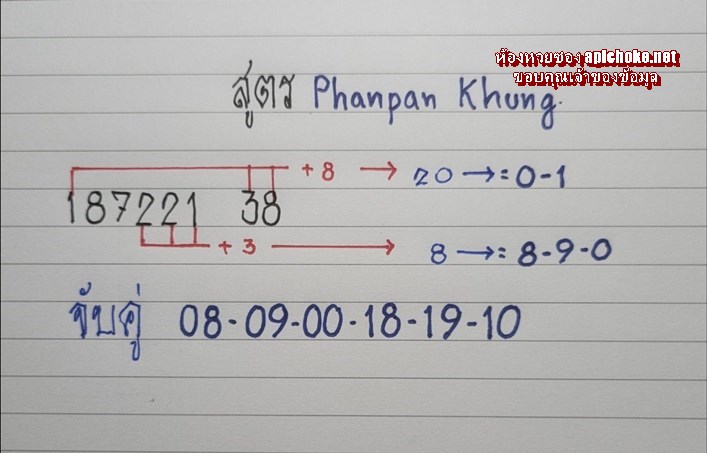 ห้องหวยของ apichoke.net
ขอบคุณเจ้าของข้อมูล
สูตร Phanpan Khung.
+ 8 → 20 → = 0-1
187221 38
+ 3 → 8 → = 8-9-0
จับคู่ 08-09-00-18-19-10